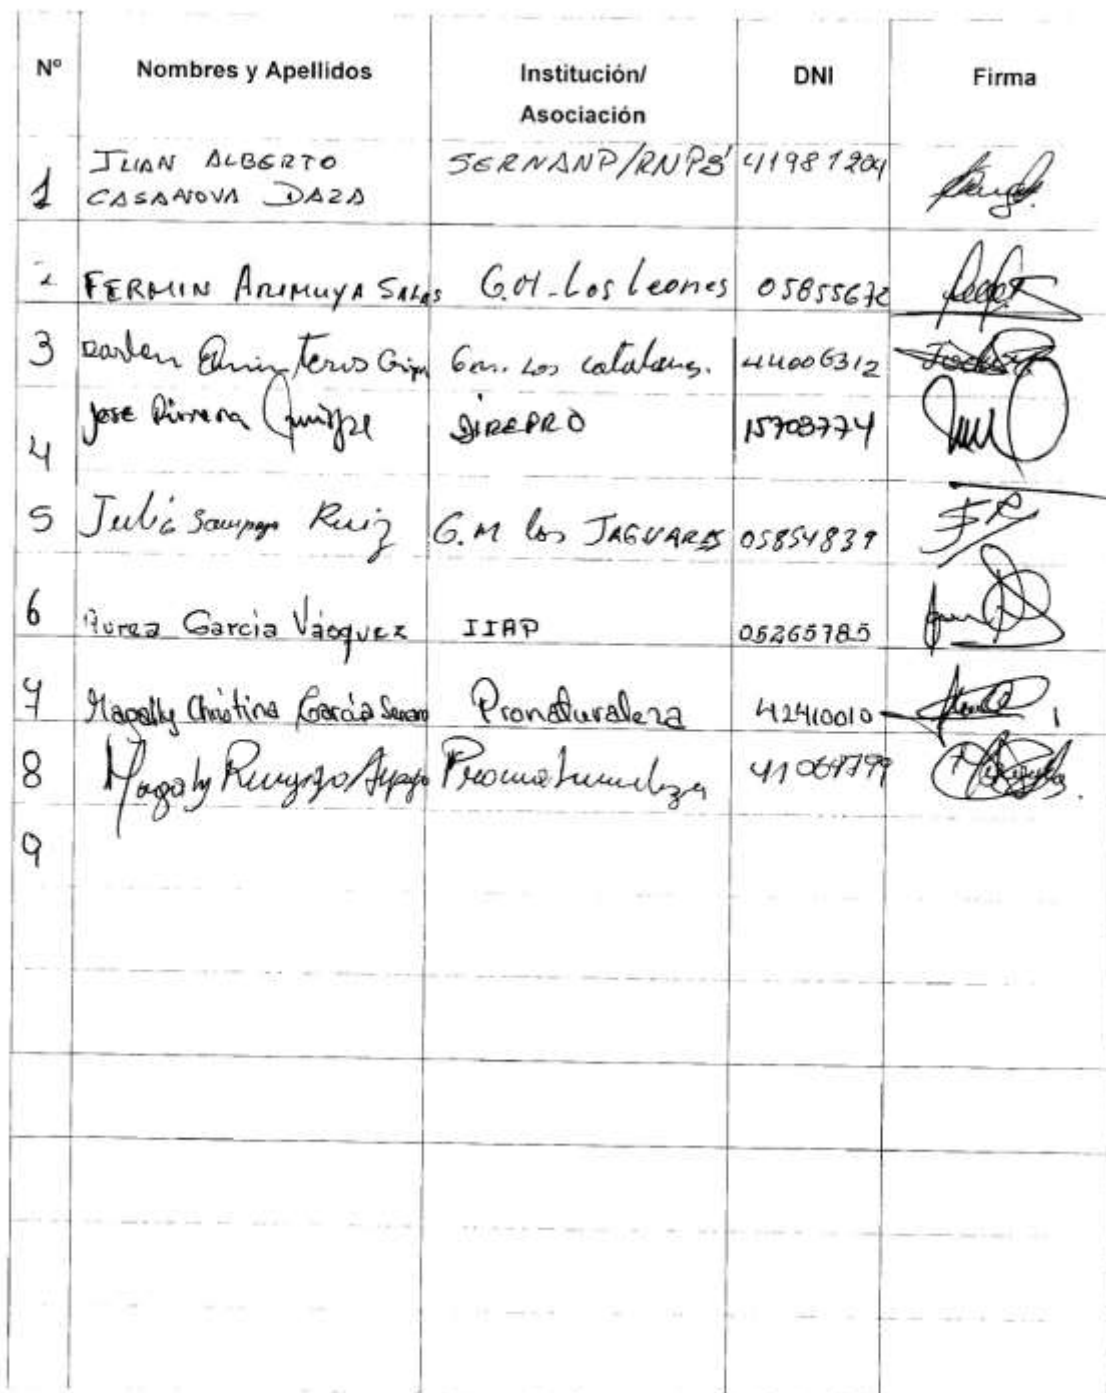 Nº Nombres y Apellidos Institución/ Asociación DNI Firma
1 JUAN ALBERTO CASANOVA DAZA SERNANP/RNPS 41981204
2 FERMIN ARIMUYA SALAS G.M. Los leones 05855672
3 Los 44006312
4 Jose Quispe DIREPRO 15703774
5 Julio Ruiz G.M los JAGUARES 05854839
6 Aurea García Vásquez IIAP 05265785
7 Magally Christina García Pronaturaleza 42410010
8 Magaly Pronaturaleza
9